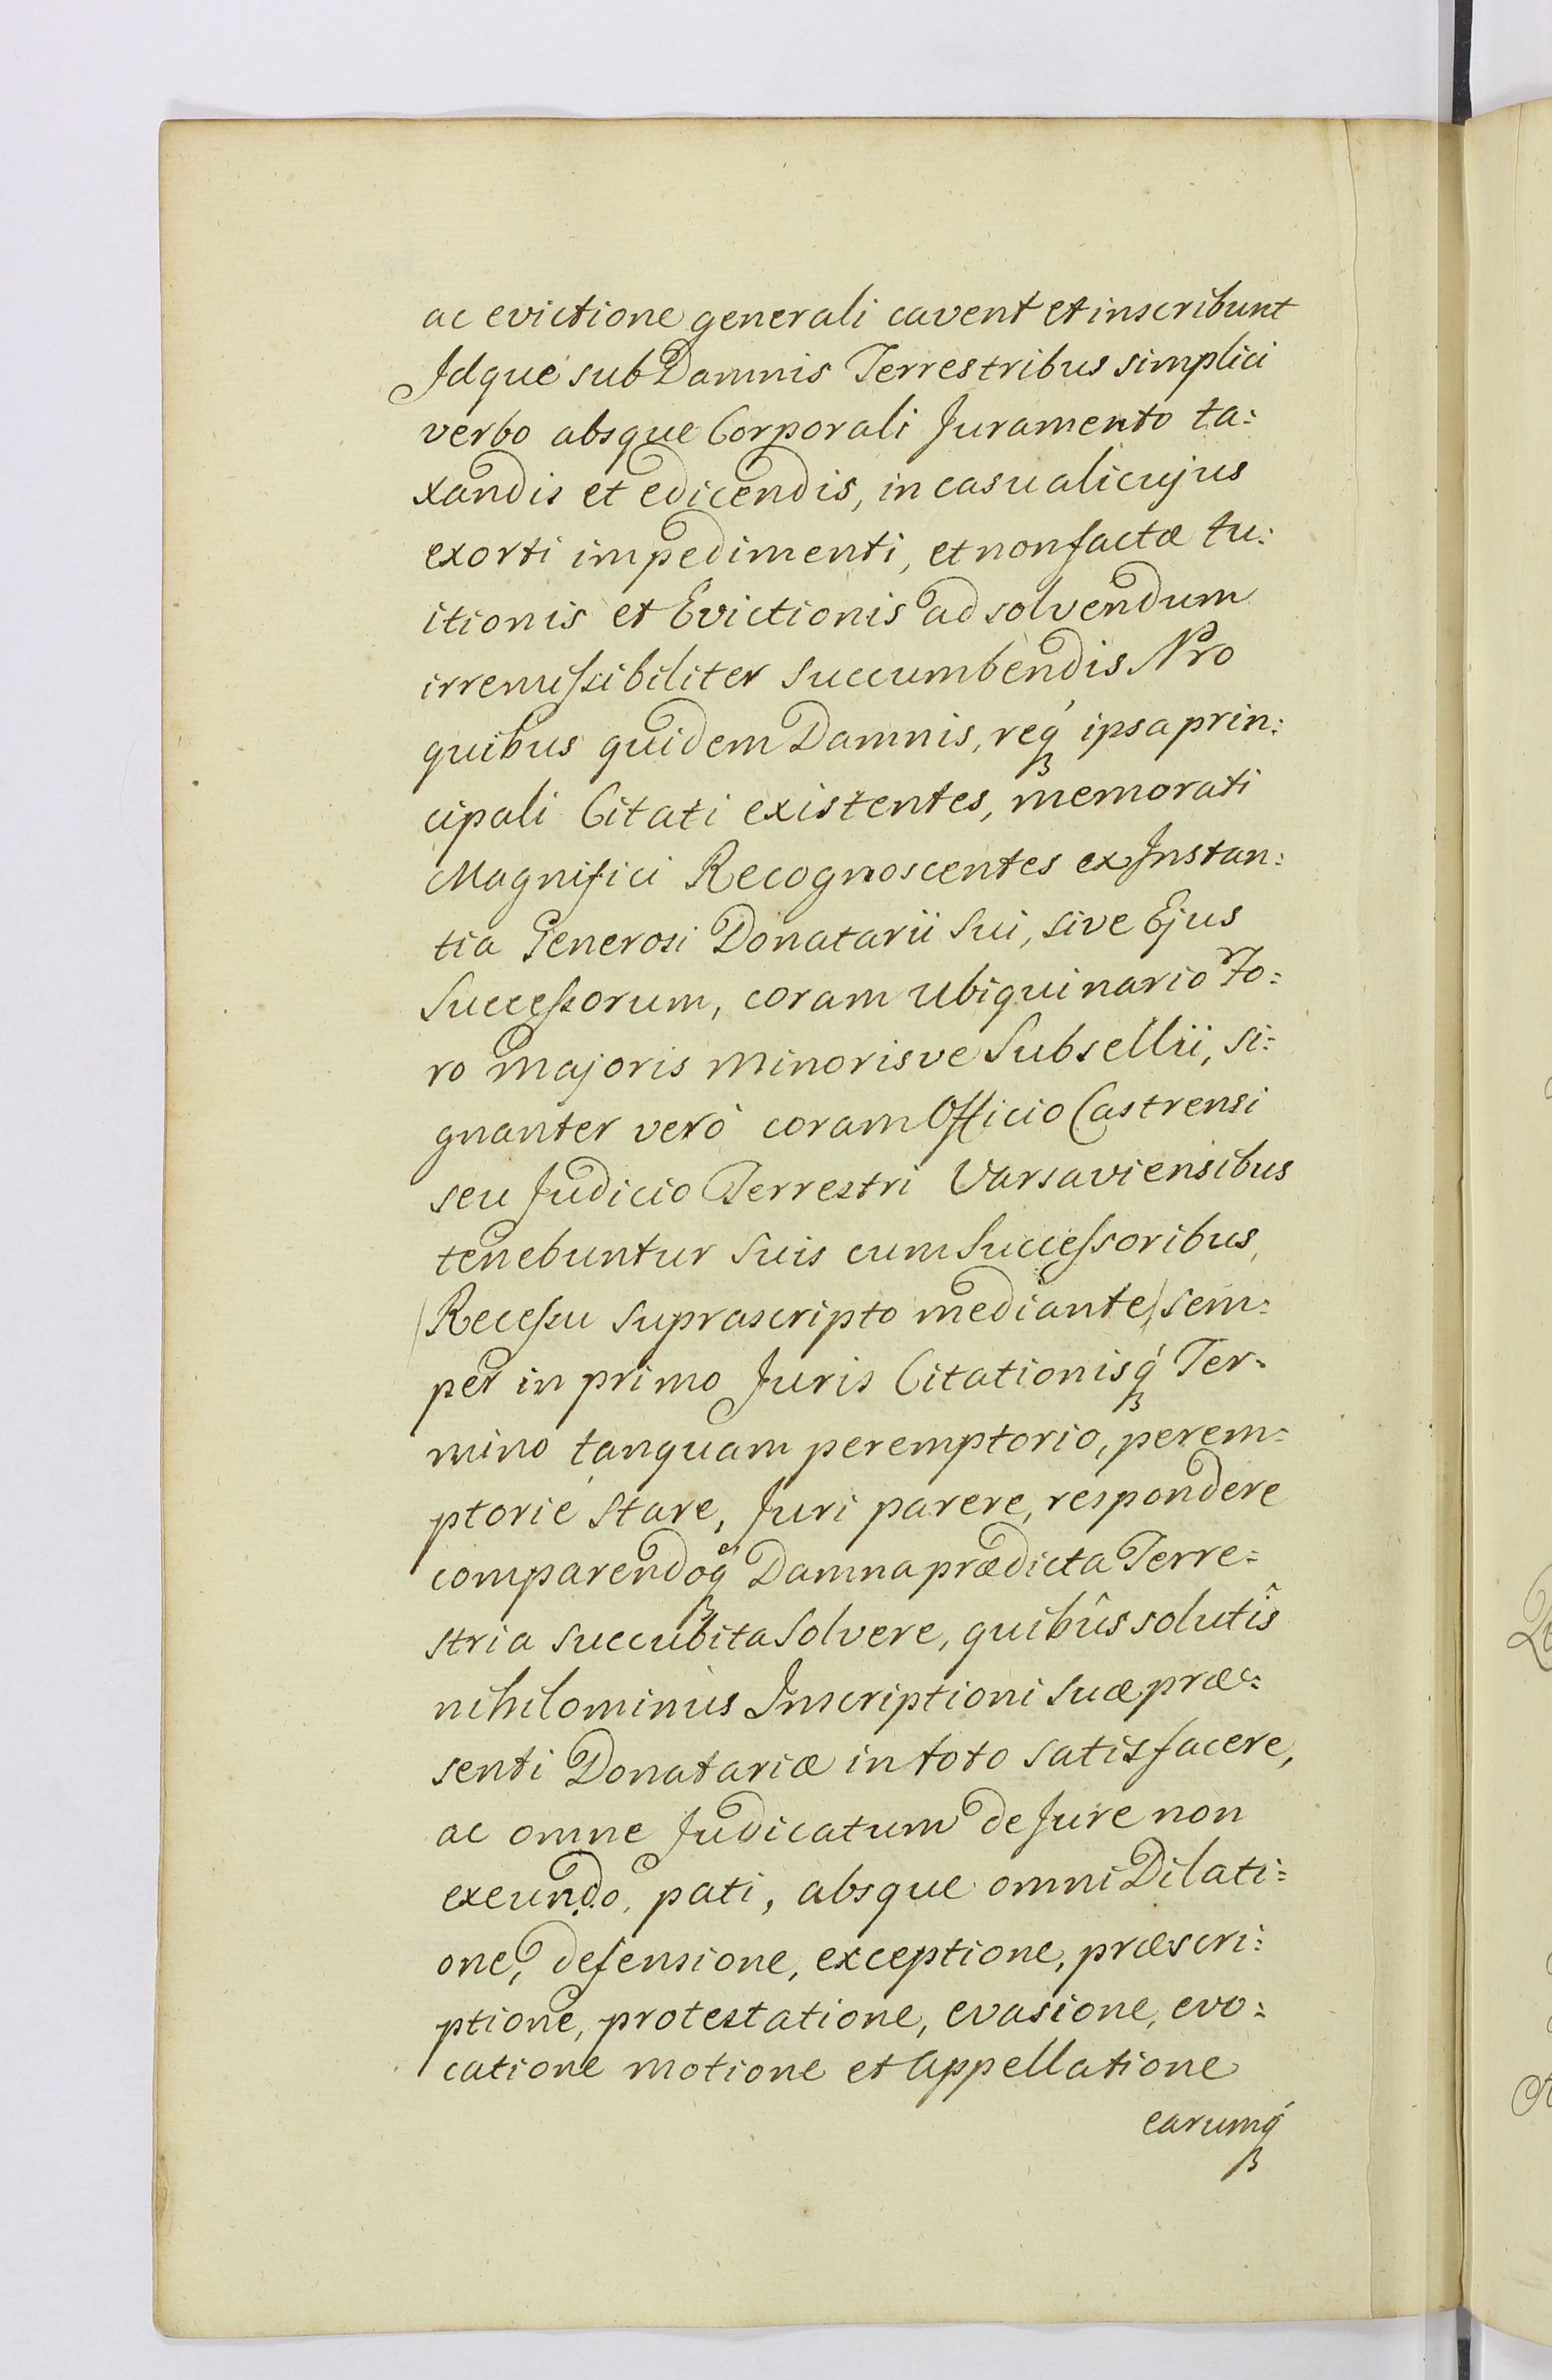 ac evictione generali cavent et inscribunt
Idque sub Damnis Terrestribus simplici
verbo absque Corporali Juramento ta:
xandis et edicendis, in casu alicujus
exorti impedimenti, et non factæ tu:
itionis et Evictionis ad solvendum
irremissibiliter succumbendis Pro
quibus quidem Damnis, reqꝫ ipsa prin:
cipali Citati existentes, memorati
Magnifici Recognoscentes ex Instan:
tia Generosi Donatarii sui, sive Ejus
Successorum, coram ubiquinario Fo:
ro majoris minorisve Subsellii, si:
gnanter verò coram Officio Castrensi
seu Judicio Terrestri Varsaviensibus
tenebuntur suis cum Successoribus,
(Recessu suprascripto mediante) sem:
per in primo Juris Citationisqꝫ Ter:
mino tanquam peremptorio, perem:
ptorié stare, Juri parere, respondere
comparendoqꝫ Damna prædicta Terre:
stria succubita solvere, quibûs solutîs
nihilominùs Inscriptioni suæ præ:
senti Donatariæ in toto satisfacere,
ac omne Judicatum de Jure non
exeundo, pati, absque omni Dilati:
one, defensione, exceptione, præscri:
ptione, protestatione, evasione, evo:
catione motione et appellatione
earumqꝫ